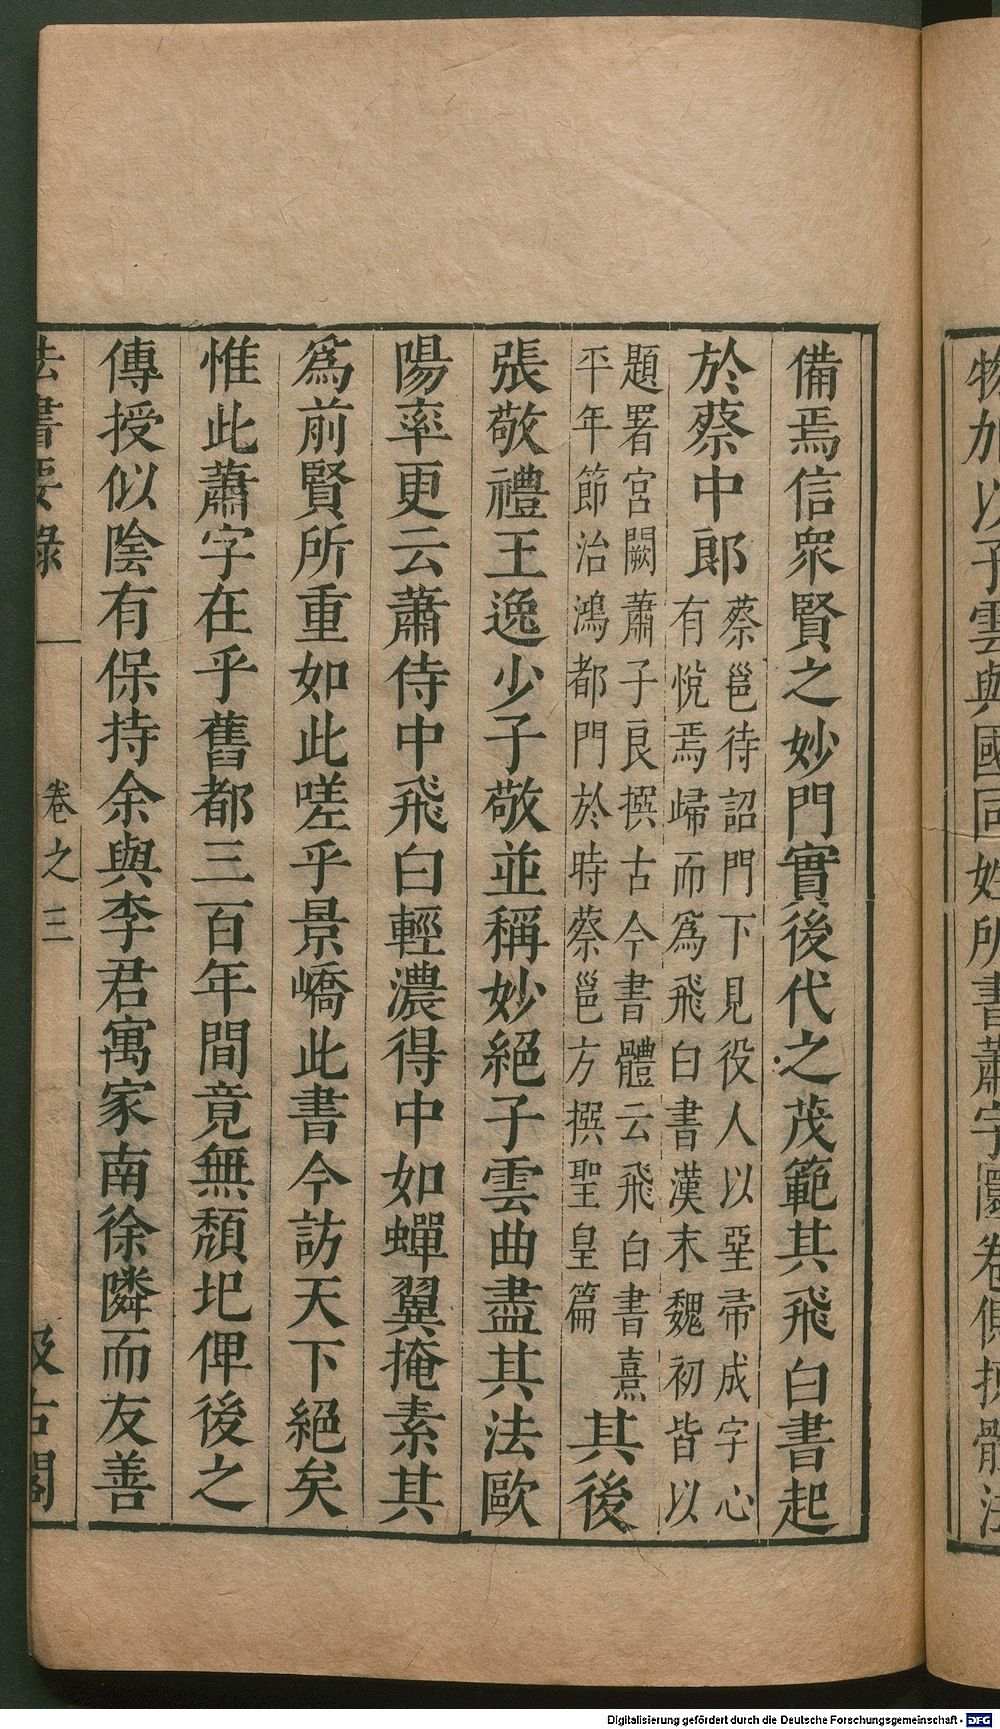 物加以子雲與國同姓所書蕭字
備焉信衆賢之妙門實後代之茂範其飛白書起
於蔡中郎
蔡邕待詔門下見役人以堊帚成字心
有悅焉歸而爲飛白書漢末魏初皆以
題署宮闕蕭子良撰古今書體云飛白書熹
平年節治鴻都門於時蔡邕方撰聖皇篇
其後
張敬禮王逸少子敬並稱妙絕子雲曲盡其法歐
陽率更云蕭侍中飛白輕濃得中如蟬翼掩素其
爲前賢所重如此嗟乎景嶠此書今訪天下絕矣
惟此蕭字在乎舊都三百年間竟無頹圯俾後之
傳授似陰有保持余與李君寓家南徐隣而友善
法書要錄 卷之三 汲古閣
Digitalisierung gefördert durch die Deutsche Forschungsgemeinschaft - DFG